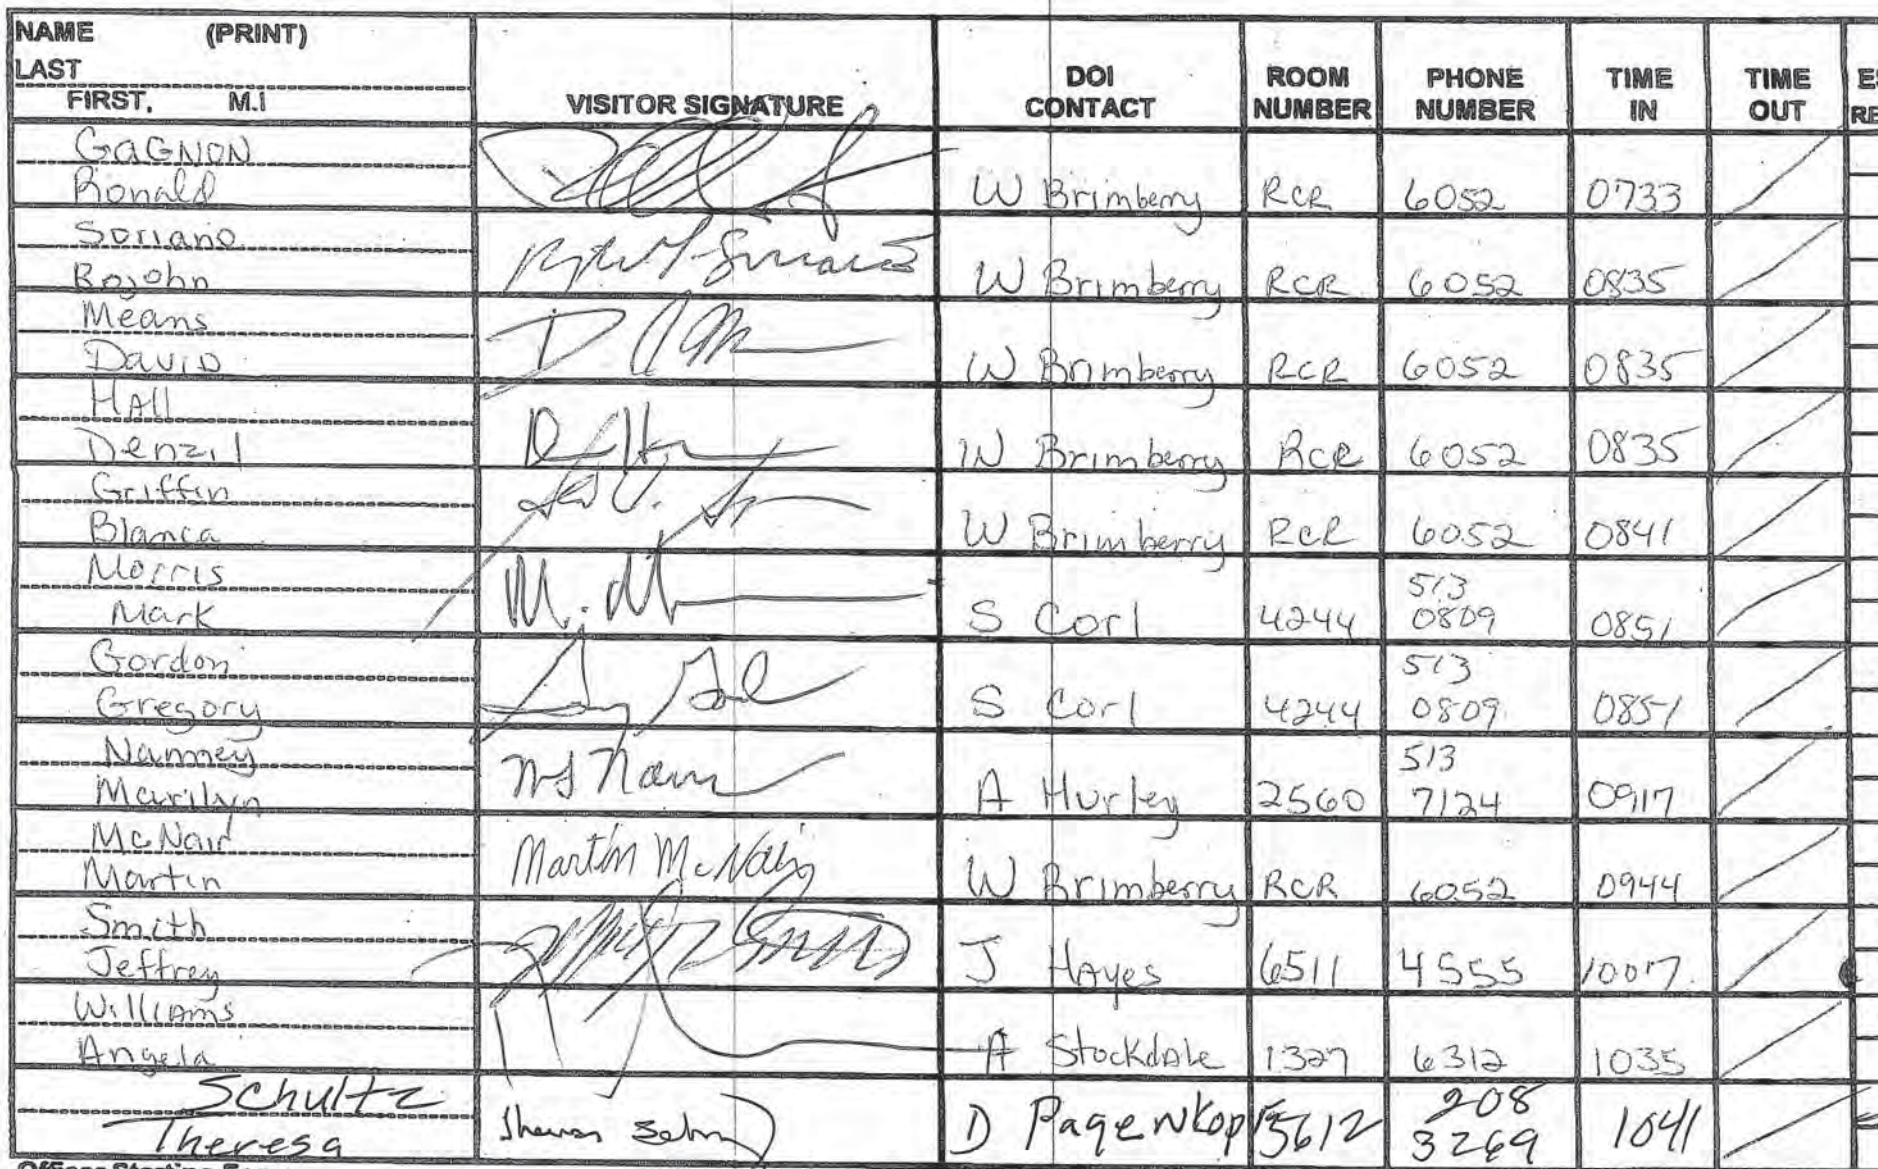 NAME (PRINT)
LAST
FIRST, M.I
VISITOR SIGNATURE
DOI CONTACT
ROOM NUMBER
PHONE NUMBER
TIME IN
TIME OUT
GAGNON
Ronald
W Brimberry RCR 6052 0733
Soriano
Rojohn
W Brimberry RCR 6052 0835
Means
David
W Brimberry RCR 6052 0835
HAll
Denzil
W Brimberry RCR 6052 0835
Griffin
Blanca
W Brimberry RCR 6052 0841
Morris
Mark
S Corl 4244 513 0809 0851
Gordon
Gregory
S Corl 4244 513 0809 0851
Nanney
Marilyn
A Hurley 2560 513 7124 0917
McNair
Martin
Martin McNair
W Brimberry RCR 6052 0944
Smith
Jeffrey
J HAyes 6511 4555 1007
Williams
Angela
A Stockdale 1327 6312 1035
Schultz
Theresa
D Pagenkop 5612 208 3269 1041